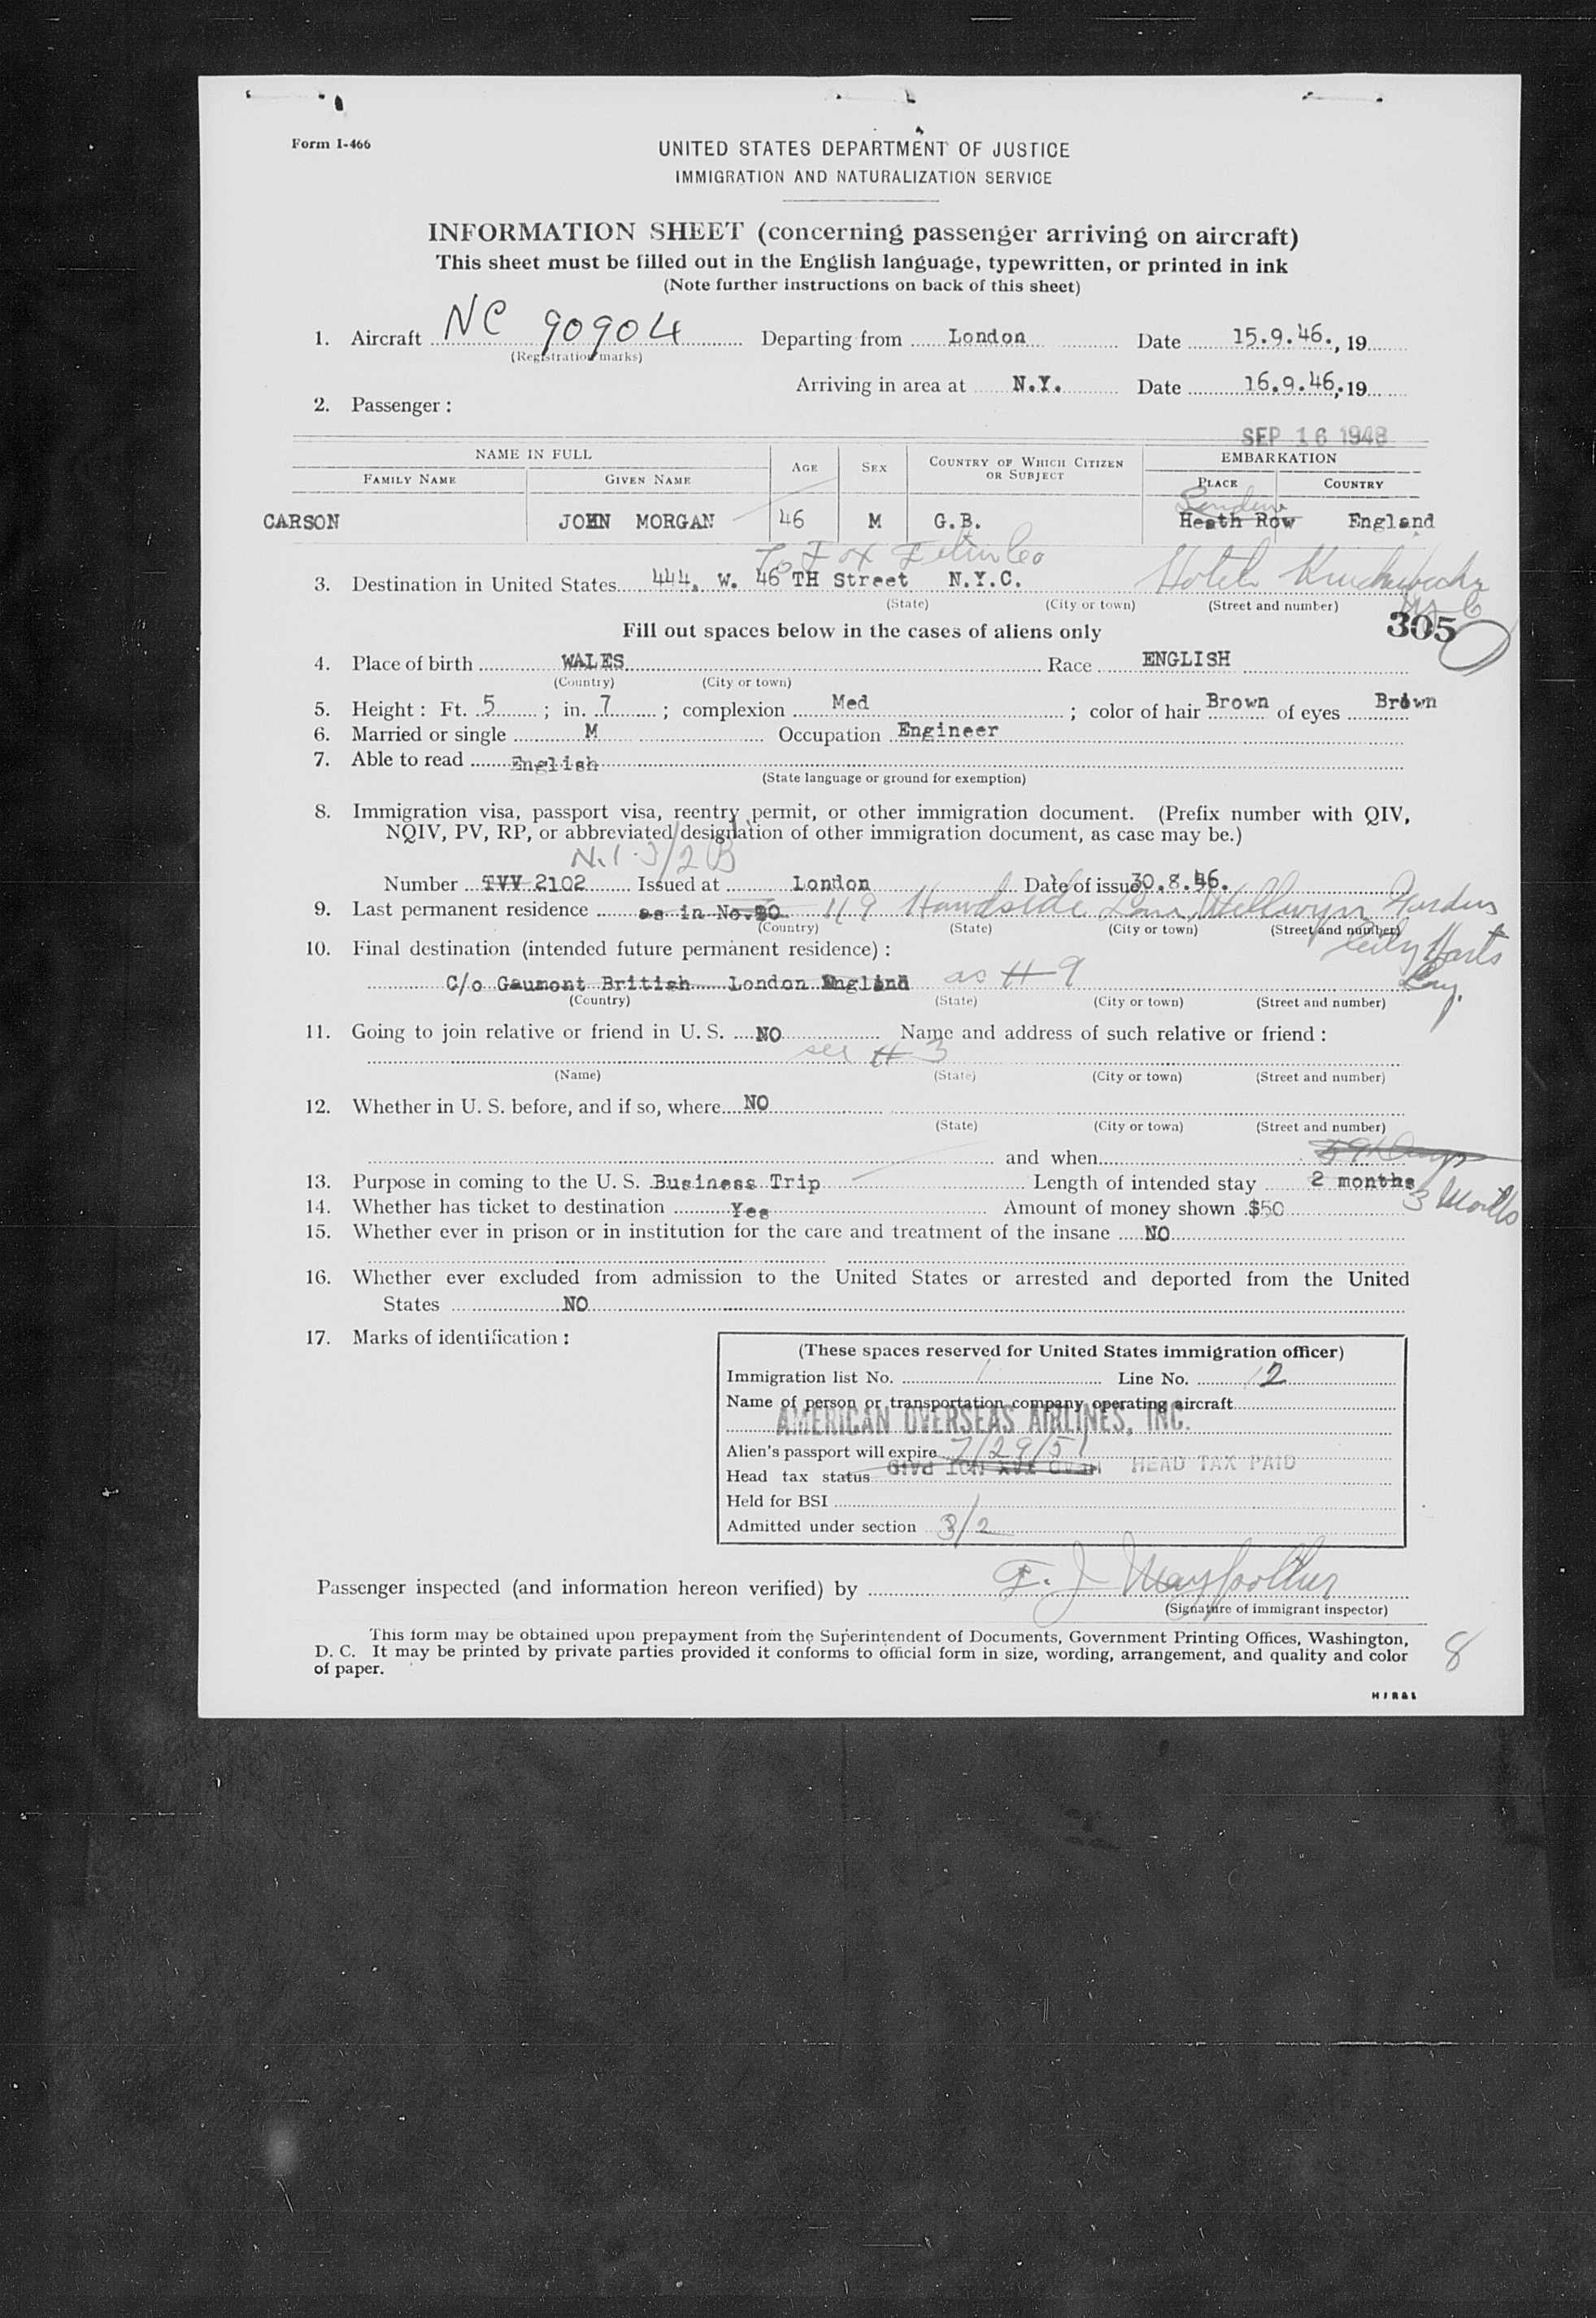 Form I-466
UNITED STATES DEPARTMENT OF JUSTICE
IMMIGRATION AND NATURALIZATION SERVICE
INFORMATION SHEET (concerning passenger arriving on aircraft)
This sheet must be filled out in the English language, typewritten, or printed in ink
(Note further instructions on back of this sheet)
1. Aircraft NC 90904 Departing from London Date 15.9.46., 19
(Registration marks)
Arriving in area at N.Y. Date 16.9.46, 19
2. Passenger:
SEP 16 1946
NAME IN FULL AGE SEX COUNTRY OF WHICH CITIZEN OR SUBJECT EMBARKATION
FAMILY NAME GIVEN NAME PLACE COUNTRY
London
CARSON JOHN MORGAN 46 M G.B. Heath Row England
To Fox Film Co
3. Destination in United States 444, W. 46 TH Street N.Y.C. Hotel
(State) (City or town) (Street and number)
305
Fill out spaces below in the cases of aliens only
4. Place of birth WALES Race ENGLISH
(Country) (City or town)
5. Height: Ft. 5; in. 7; complexion Med; color of hair Brown of eyes Brown
6. Married or single M Occupation Engineer
7. Able to read English
(State language or ground for exemption)
8. Immigration visa, passport visa, reentry permit, or other immigration document. (Prefix number with QIV,
NQIV, PV, RP, or abbreviated designation of other immigration document, as case may be.)
N.I. 3/2 B
Number TVV 2102 Issued at London Date of issue 30.8.46.
9. Last permanent residence as in No.20 119 Handside Lane, Wellwyn Garden
(Country) (State) (City or town) (Street and number)
City Harts
10. Final destination (intended future permanent residence):
C/o Gaumont British London England as # 9 Eng.
(Country) (State) (City or town) (Street and number)
11. Going to join relative or friend in U. S. NO Name and address of such relative or friend:
see # 3
(Name) (State) (City or town) (Street and number)
12. Whether in U. S. before, and if so, where NO
(State) (City or town) (Street and number)
and when 59 Days
13. Purpose in coming to the U. S. Business Trip Length of intended stay 2 months
3 Months
14. Whether has ticket to destination Yes Amount of money shown $50
15. Whether ever in prison or in institution for the care and treatment of the insane NO
16. Whether ever excluded from admission to the United States or arrested and deported from the United
States NO
17. Marks of identification:
(These spaces reserved for United States immigration officer)
Immigration list No. 1 Line No. 12
Name of person or transportation company operating aircraft
AMERICAN OVERSEAS AIRLINES, INC.
Alien's passport will expire 7/29/51
Head tax status HEAD TAX PAID
Held for BSI
Admitted under section 3/2
Passenger inspected (and information hereon verified) by F. J.
(Signature of immigrant inspector)
This form may be obtained upon prepayment from the Superintendent of Documents, Government Printing Offices, Washington,
D. C. It may be printed by private parties provided it conforms to official form in size, wording, arrangement, and quality and color
of paper.
8